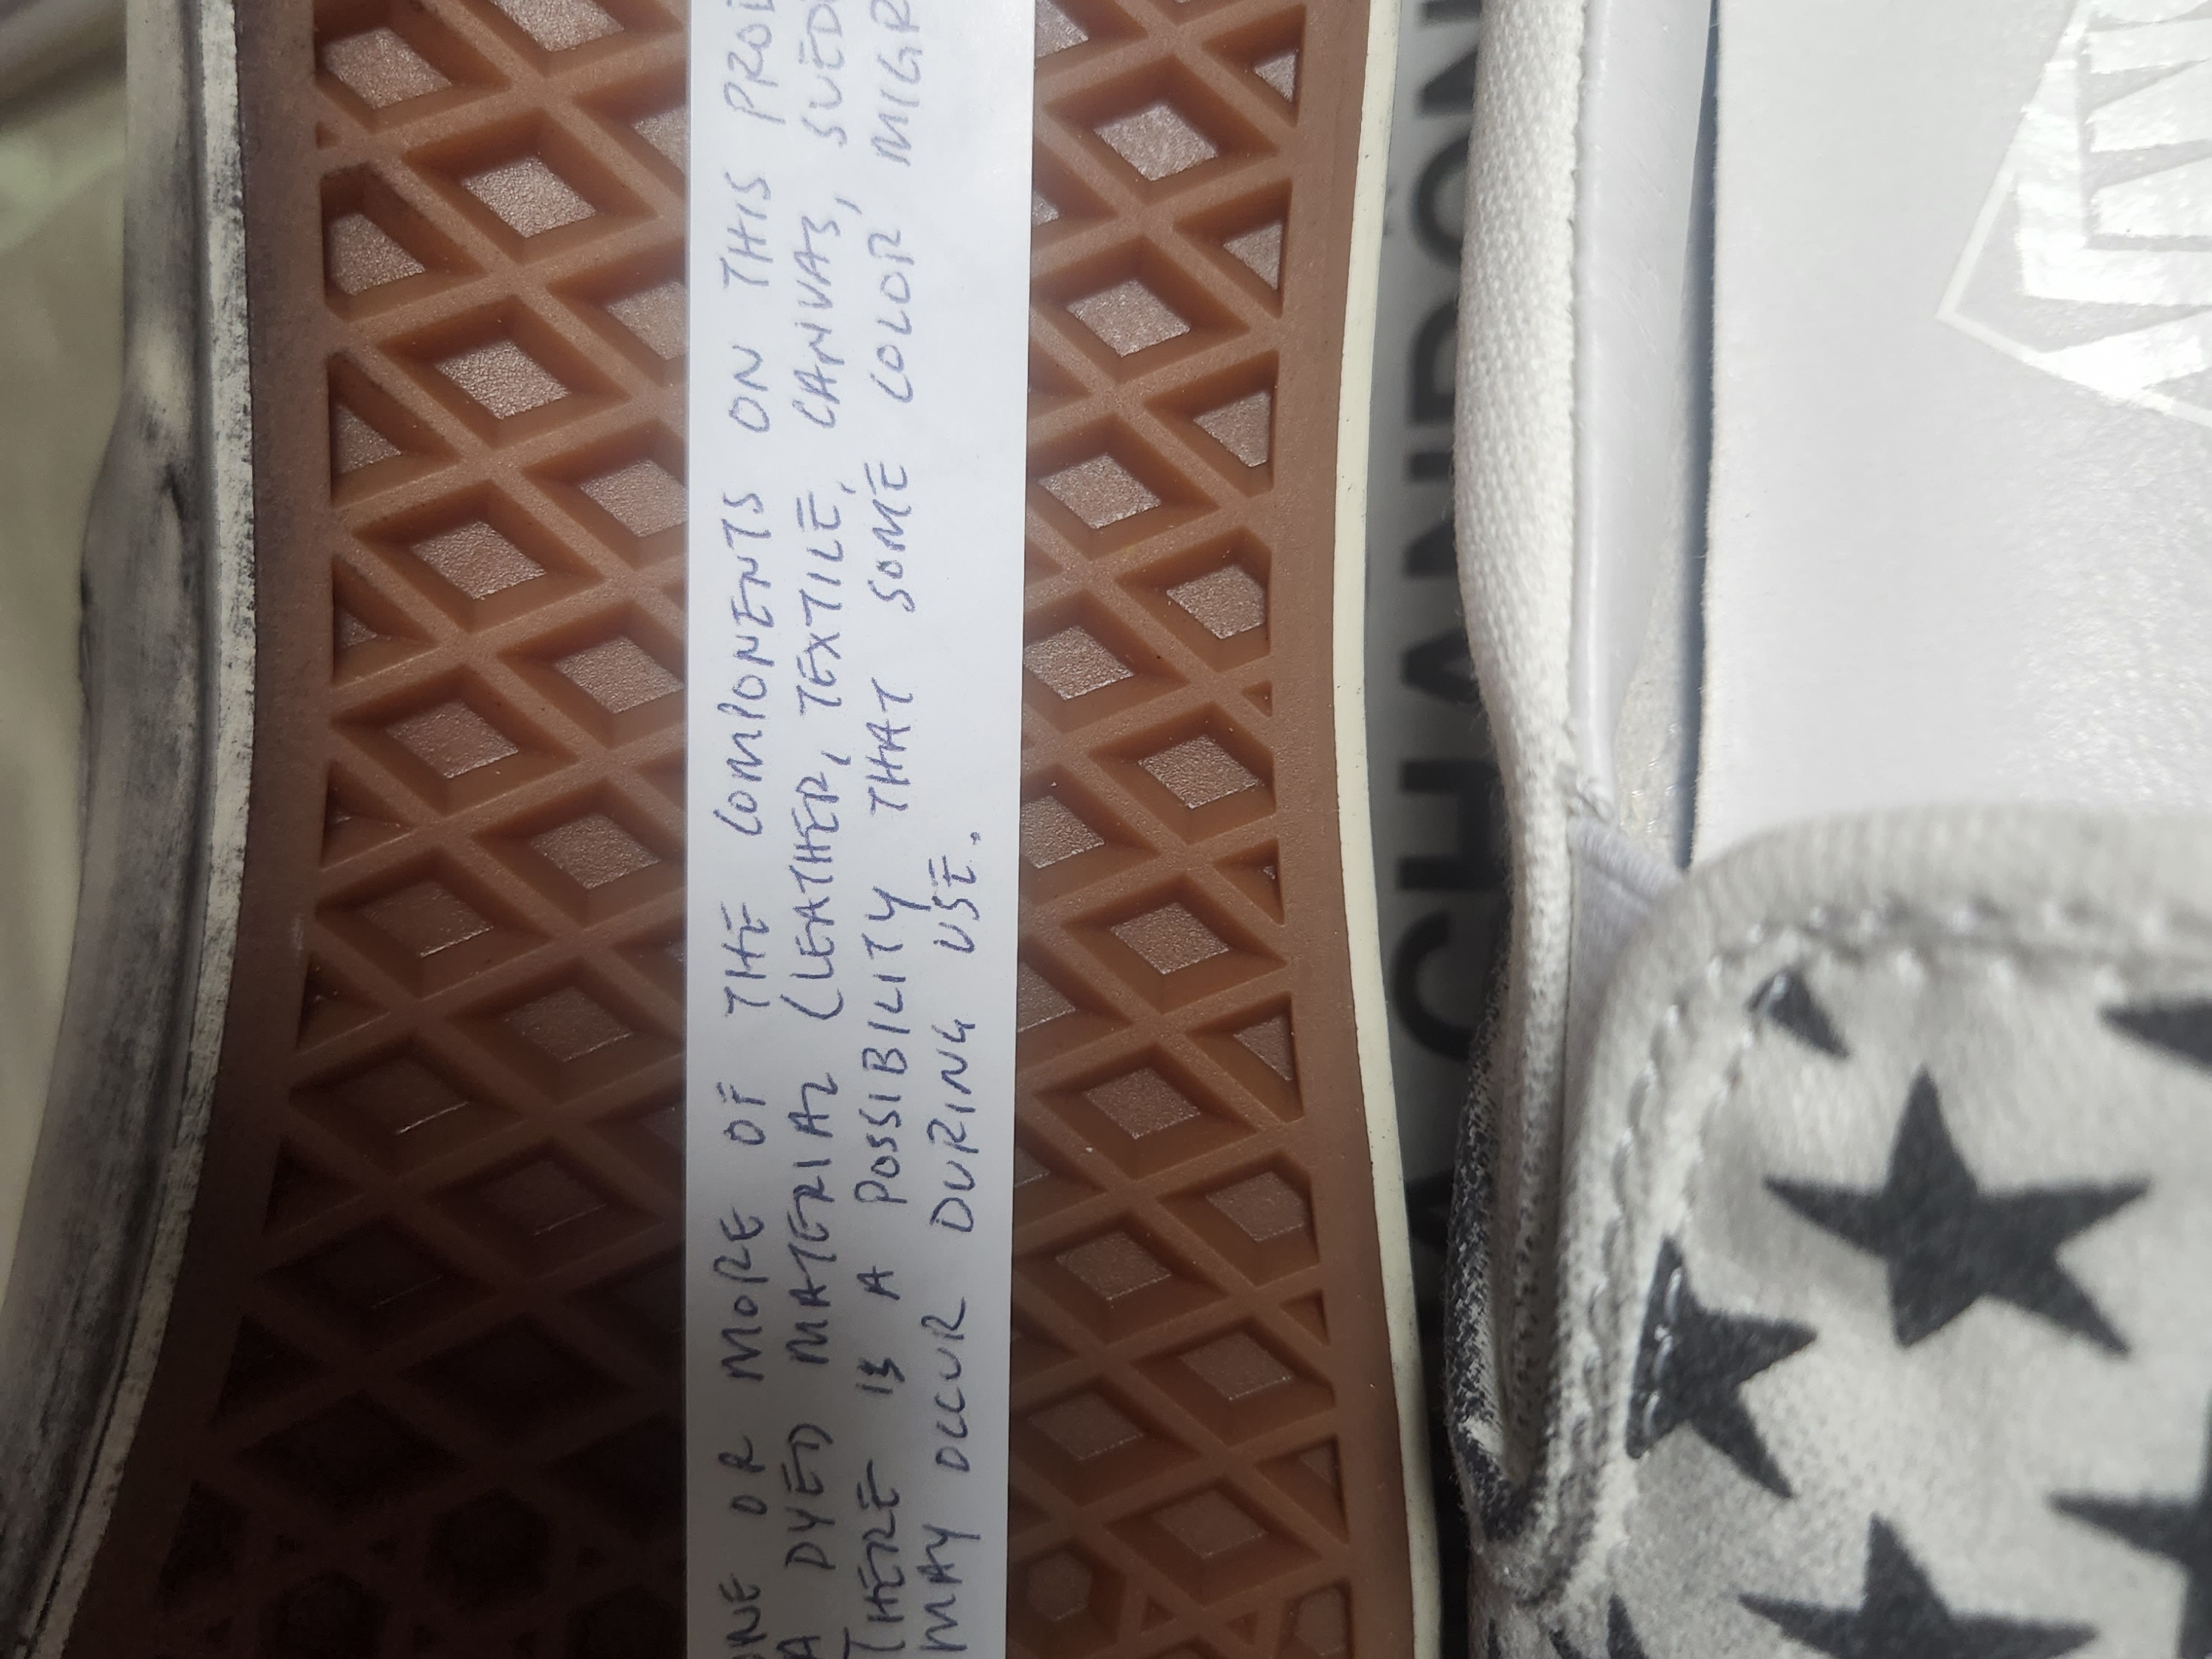 ONE OR MORE OF THE COMPONENTS ON THIS PROD
A DYED MATERIAL (LEATHER, TEXTILE, CANVAS, SUED
THERE IS A POSSIBILITY THAT SOME COLOR MIGR
MAY OCCUR DURING USE.
CHANDON